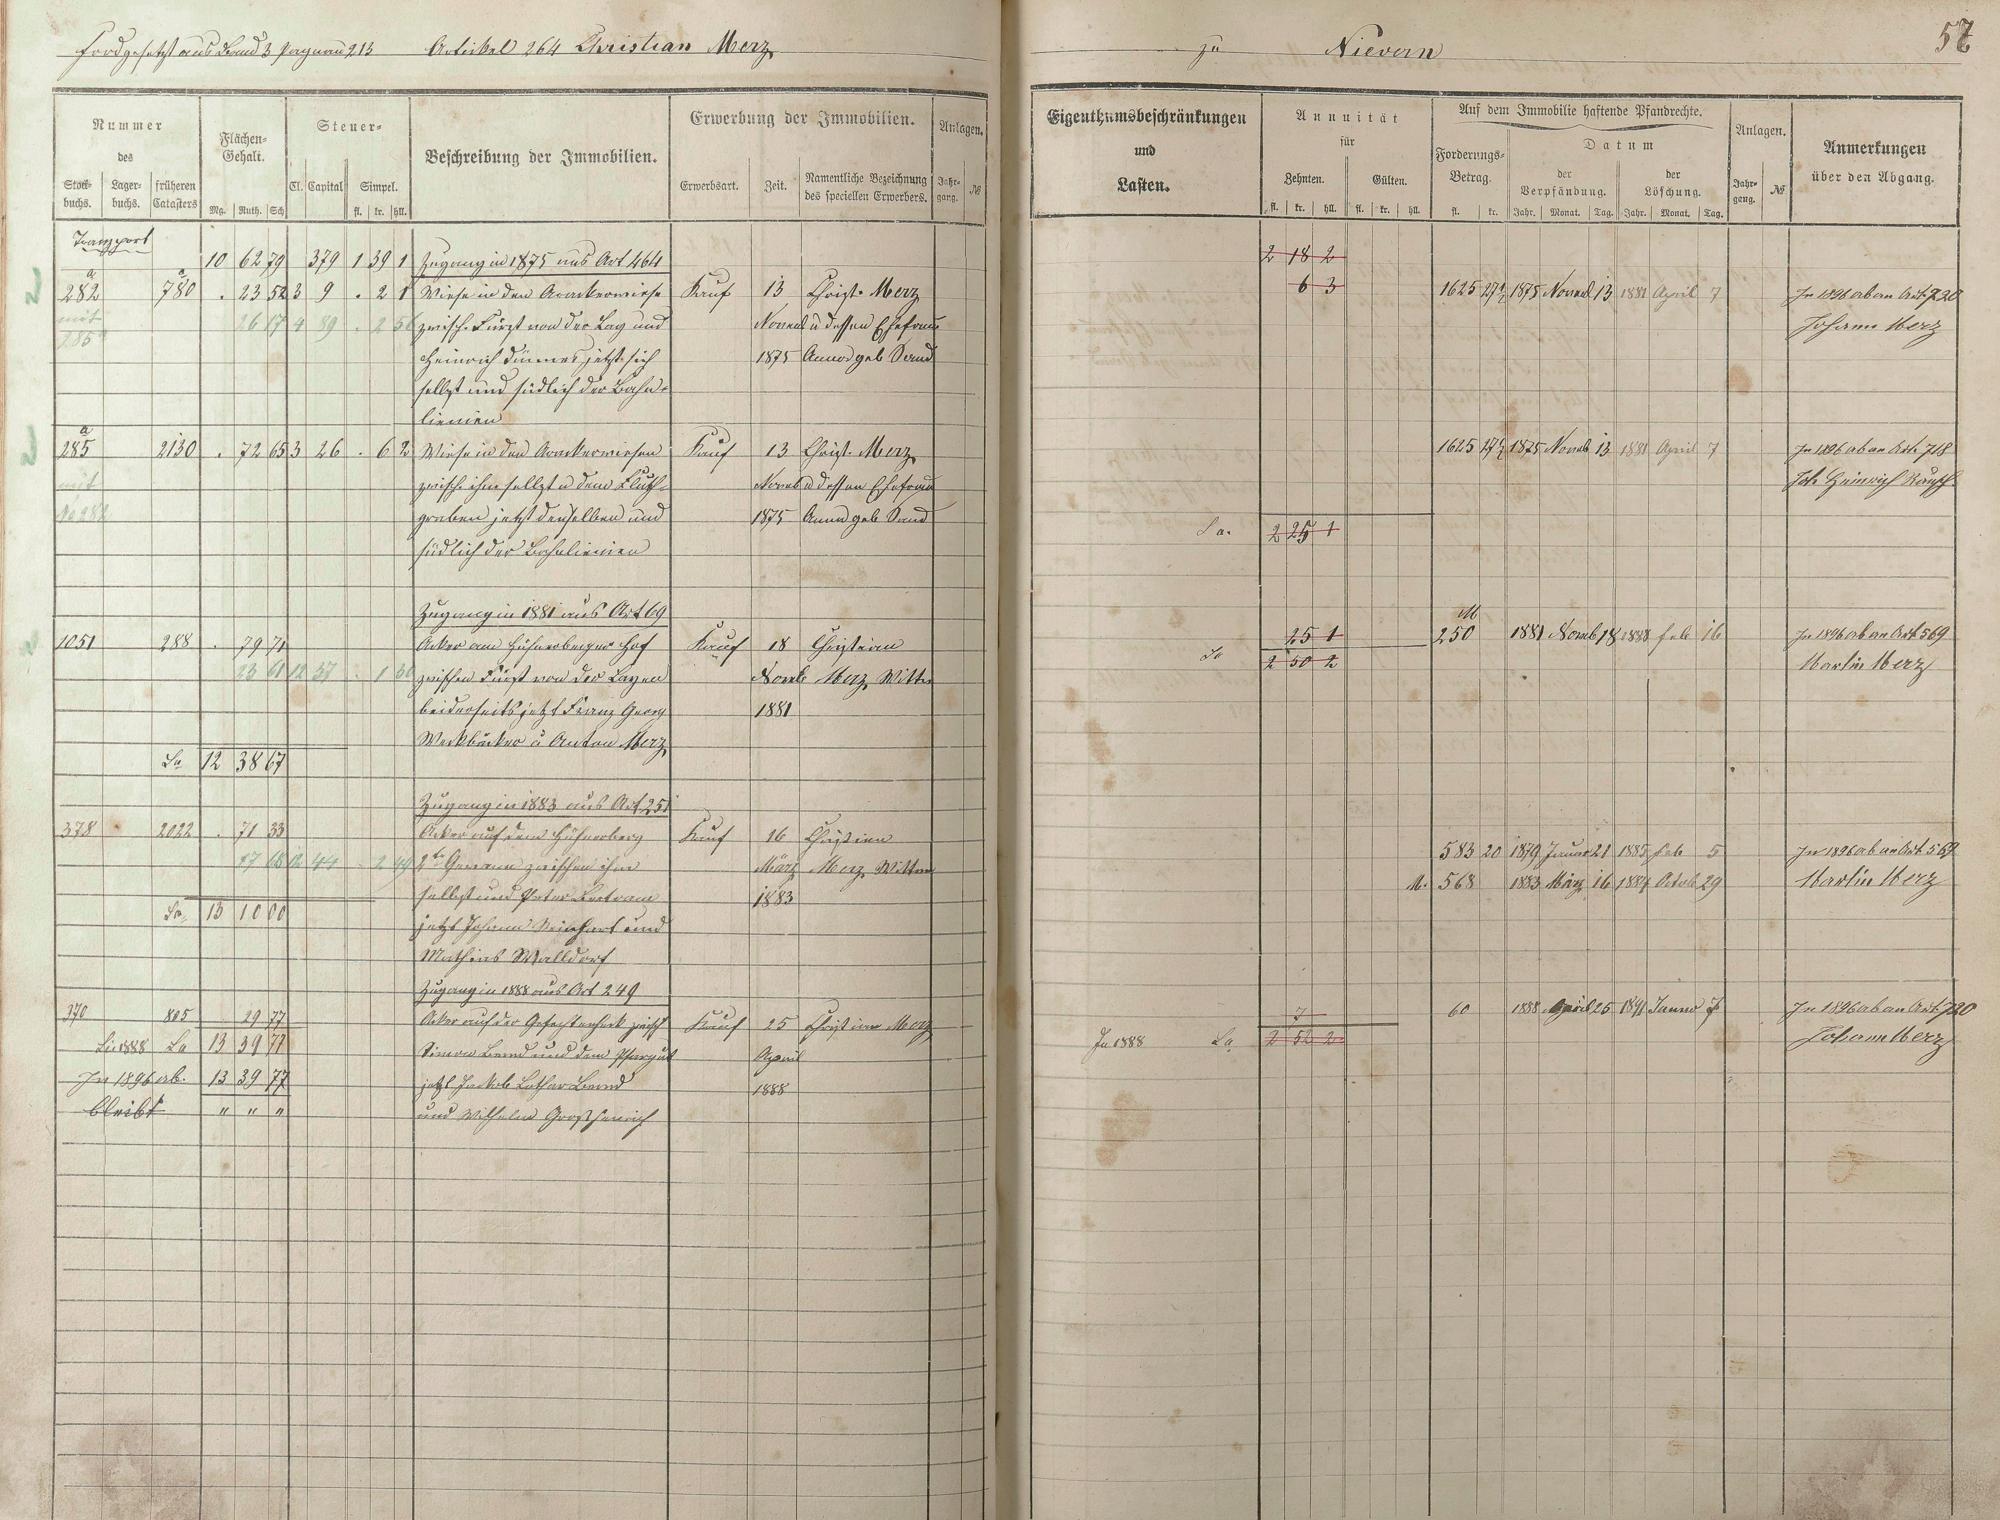 Fordgesetzt aus Band 3 pagnau 213 Artikel 264 Christian Merz
zu Nievern
57
Nummer
des
Stock-
buchs.
Lager-
buchs.
früheren
Catasters
Flächen-
Gehalt.
Mg. Ruth. Sch
Steuer-
Cl. Capital Simpel.
fl. kr. hll.
Beschreibung der Immobilien.
Erwerbung der Immobilien.
Erwerbsart. Zeit. Namentliche Bezeichnung
des speciellen Erwerbers.
Anlagen.
Jahr-
gang. №
Eigenthumsbeschränkungen
und
Lasten.
Annuität
für
Zehnten. Gülten.
fl. kr. hll. fl. kr. hll.
Auf dem Immobilie haftende Pfandrechte.
Forderungs-
Betrag.
fl. kr.
Datum
der
Verpfändung.
Jahr. Monat. Tag.
der
Löschung.
Jahr. Monat. Tag.
Anlagen.
Jahr-
gang. №
Anmerkungen
über den Abgang.
Transport
10 62 79 379 1 39 1 Zugang in 1875 aus Art 464
2 18 2
282 a 780 a . 23 52 3 9 . 2 1 Wiese in den Aarckerwiese Kauf 13 Christ. Merz
6 3 1625 27½ 1875 Novemb 13 1881 April 7 In 1896 ab an Art 720
mit 26 17 4 89 . 2 56 zwisch. Fürst von der Lay und Novemb u dessen Ehefrau
Johann Merz
285 a Heinrich jetzt sich 1875 Anna geb Sand
selbst und südlich der Bahn-
linien
285 a 2130 . 72 65 3 26 . 6 2 Wiese in den Aarckerwiesen Kauf 13 Christ. Merz
1625 27½ 1875 Novemb 13 1881 April 7 In 1896 ab an Art 718
mit zwisch. ihm selbst u dem Fluth- Novemb u dessen Ehefrau
Joh Heinrich
No 282 graben jetzt denselben und 1875 Anna geb Sand
Sa. 2 25 1
südlich der Bahnlinien
Zugang in 1881 aus Art 69
1051 288 . 79 71 Acker am Hühnerberger Hof Kauf 18 Christian
25 1 M 250 1881 Novemb 18 1888 Feb 16 In 1896 ab an Art 569
23 61 12 37 . 1 30 zwischen Fürst von der Layen Novemb Merz Wittw
Sa 2 50 2 Martin Merz
beiderseits jetzt Franz Georg 1881
u Anton Merz
Sa 12 38 67
Zugang in 1883 aus Art 251
378 2022 . 71 33 Acker auf dem Hühnerberg Kauf 16 Christian
583 20 1879 Januar 21 1885 Feb 5 In 1896 ab an Art 569
17 18 12 44 . 2 49 2te Gewann zwischen ihm März Merz Wittw
M. 568 1883 März 16 1887 Octob 29 Martin Merz
selbst und Peter Bertram 1883
Sa. 13 10 00
jetzt Johann Reinhart und
Mathias Walldorf
Zugang in 1888 aus Art 249
370 805 29 77 Acker auf der zwisch Kauf 25 Christian Merz
7 60 1888 April 25 1891 7 In 1896 ab an Art 720
1888 Sa 13 39 77 Simon Bernd und dem Pfarrgut April
In 1888 Sa 2 52 2 Johann Merz
In 1896 ab. 13 39 77 jetzt Jackob Lothar Bernd 1888
bleibt " " " und Wilhelm Großhenrich